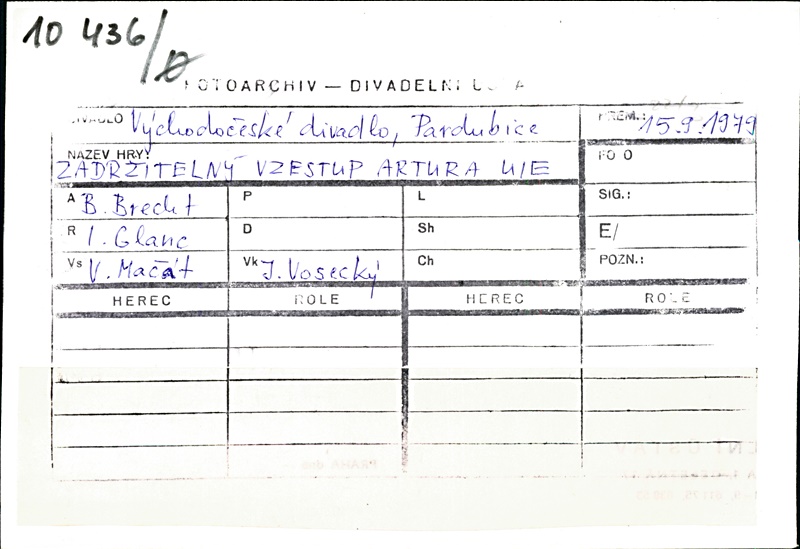 10 436/D
FOTOARCHIV — DIVADELNÍ
DIVADLO Východočeské divadlo, Pardubice PREM.: 15.9.1979
NÁZEV HRY: ZADRŽITELNÝ VZESTUP ARTURA UIE FOTO
A B. Brecht P L SIG.:
R I. Glanc D Sh E/
Vs V. Mačát Vk J. Vosecký Ch POZN.:
HEREC ROLE HEREC ROLE